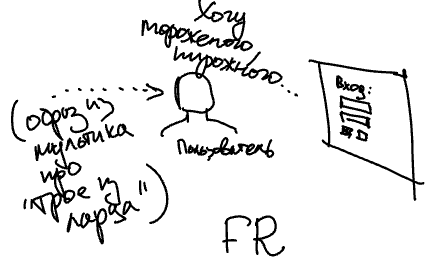 Хочу
мороженого,
пирожного...
Вход:
(образ из
мультика
про
"трое из
ларца")
Пользователь
FR